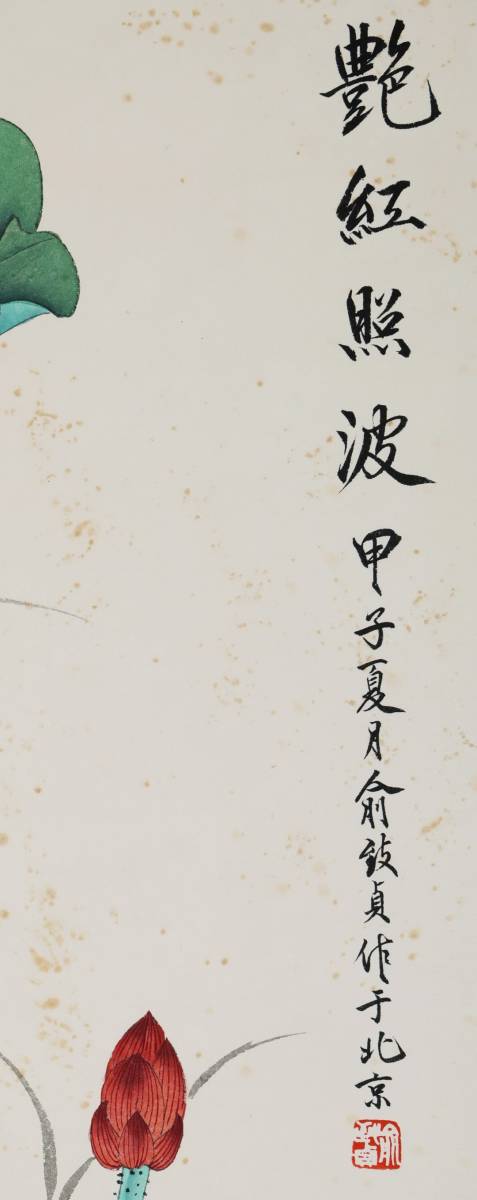 艷紅照波 甲子夏月俞致貞作于北京